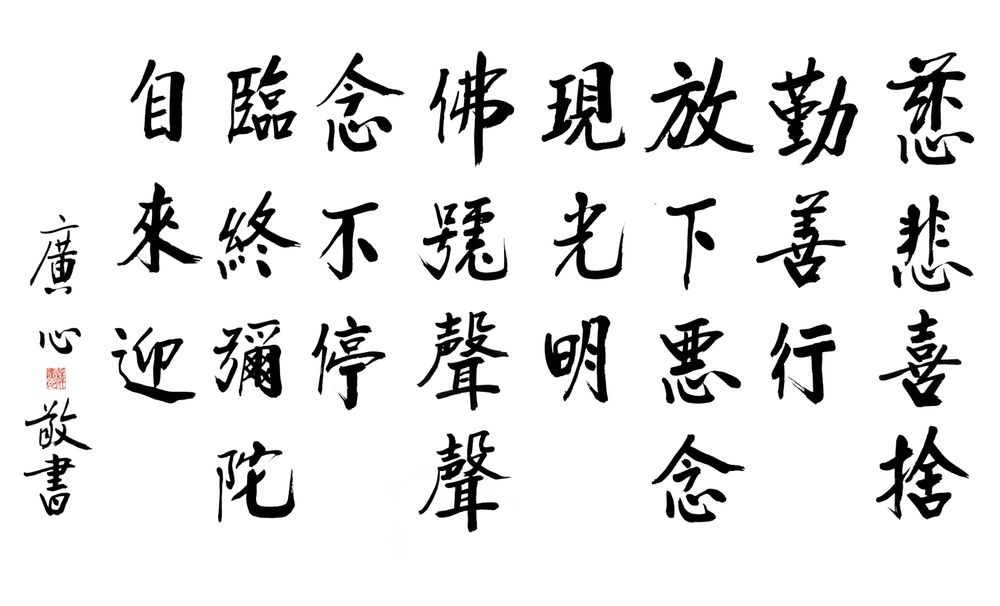 慈悲喜捨
勤善行
放下悪念
現光明
佛號聲聲
念不停
臨終彌陀
自來迎
廣心敬書